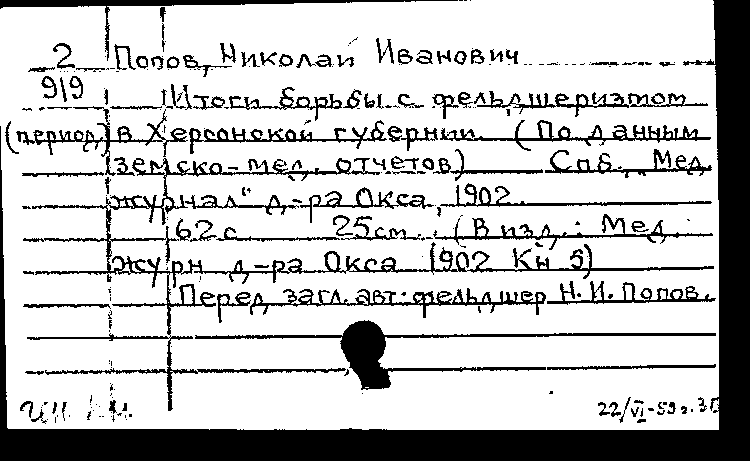 2 Попов, Николай Иванович
9|9 Итоги борьбы с фельдшеризмом
(период) в Херсонской губернии. (По данным
земско-мед. отчетов) Спб., Мед.
журнал" д-ра Окса, 1902.
62 с. 25 см. (В изд.: Мед.
журн д-ра Окса 1902 Кн 5)
Перед загл. авт: фельдшер Н. И. Попов.
22/VI-59 г.